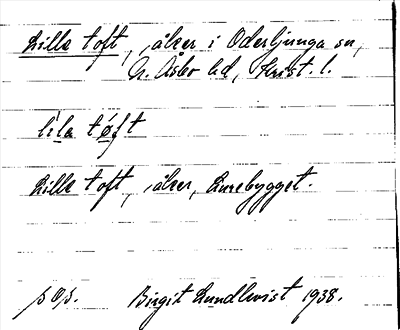 Lilla toft, åker i Oderljunga sn,
N. Åsbo hd, Krist. l.
lìla tøft
Lilla toft, åker, Lurebygget.
s o s. Birgit Lundkvist 1938.